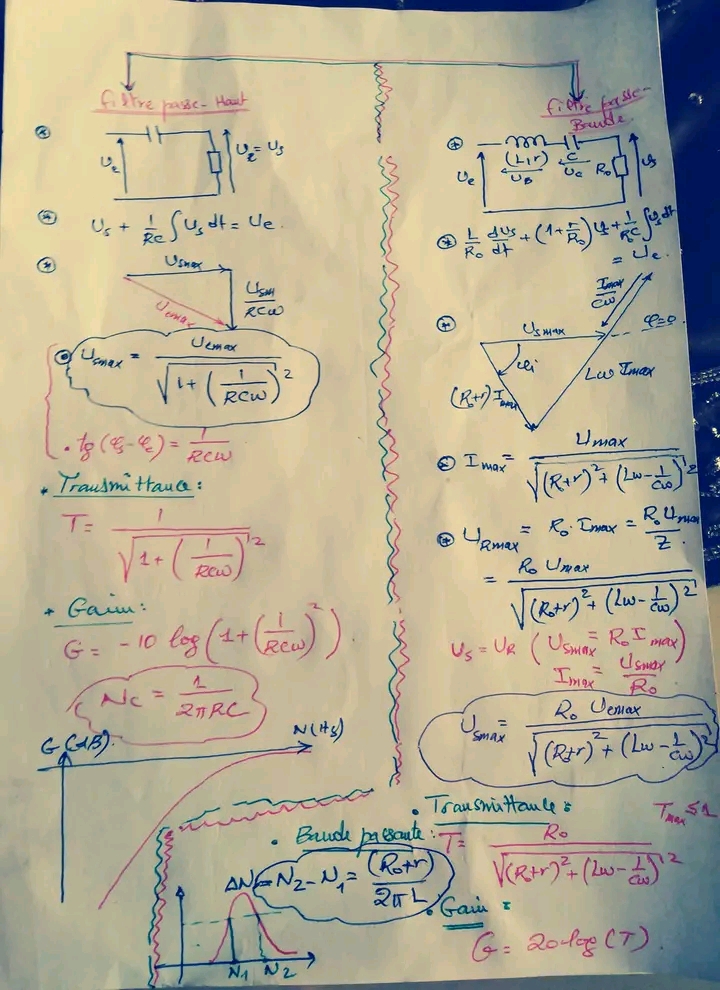 Filtre passe-Haut
Ue
U₂ = Us
Us + 1/RC ∫ Us dt = Ue.
Usmax
Uemax
Usm/RCω
Usmax = Uemax / √(1 + (1/RCω)²)
. tg (φs - φe) = 1/RCω
* Transmittance :
T = 1 / √(1 + (1/RCω)²)
+ Gain :
G = -10 log (1 + (1/RCω)²).
Nc = 1/2πRC
G (dB).
N (Hz)
Filtre passe-
Bande
Ue
(L,r)
UB
C
Uc
R₀
Us
L/R₀ dUs/dt + (1 + r/R₀) Us + 1/R₀C ∫ Us dt
= Ue
Imax/Cω
Usmax
φ=0
φi
Lω Imax
(R₀+r) Imax
Imax = Umax / √((R₀+r)² + (Lω - 1/Cω)²)
URmax = R₀ . Imax = R₀ Umax / Z
= R₀ Umax / √((R₀+r)² + (Lω - 1/Cω)²)
Us = UR ( Usmax = R₀ Imax )
Imax = Usmax / R₀
Usmax = R₀ Uemax / √((R₀+r)² + (Lω - 1/Cω)²)
. Transmittance :
Tmax ≤ 1
T = R₀ / √((R₀+r)² + (Lω - 1/Cω)²)
. Bande passante :
ΔN = N₂ - N₁ = (R₀+r) / 2πL
N₁ N₂
. Gain :
G = 20 log (T).